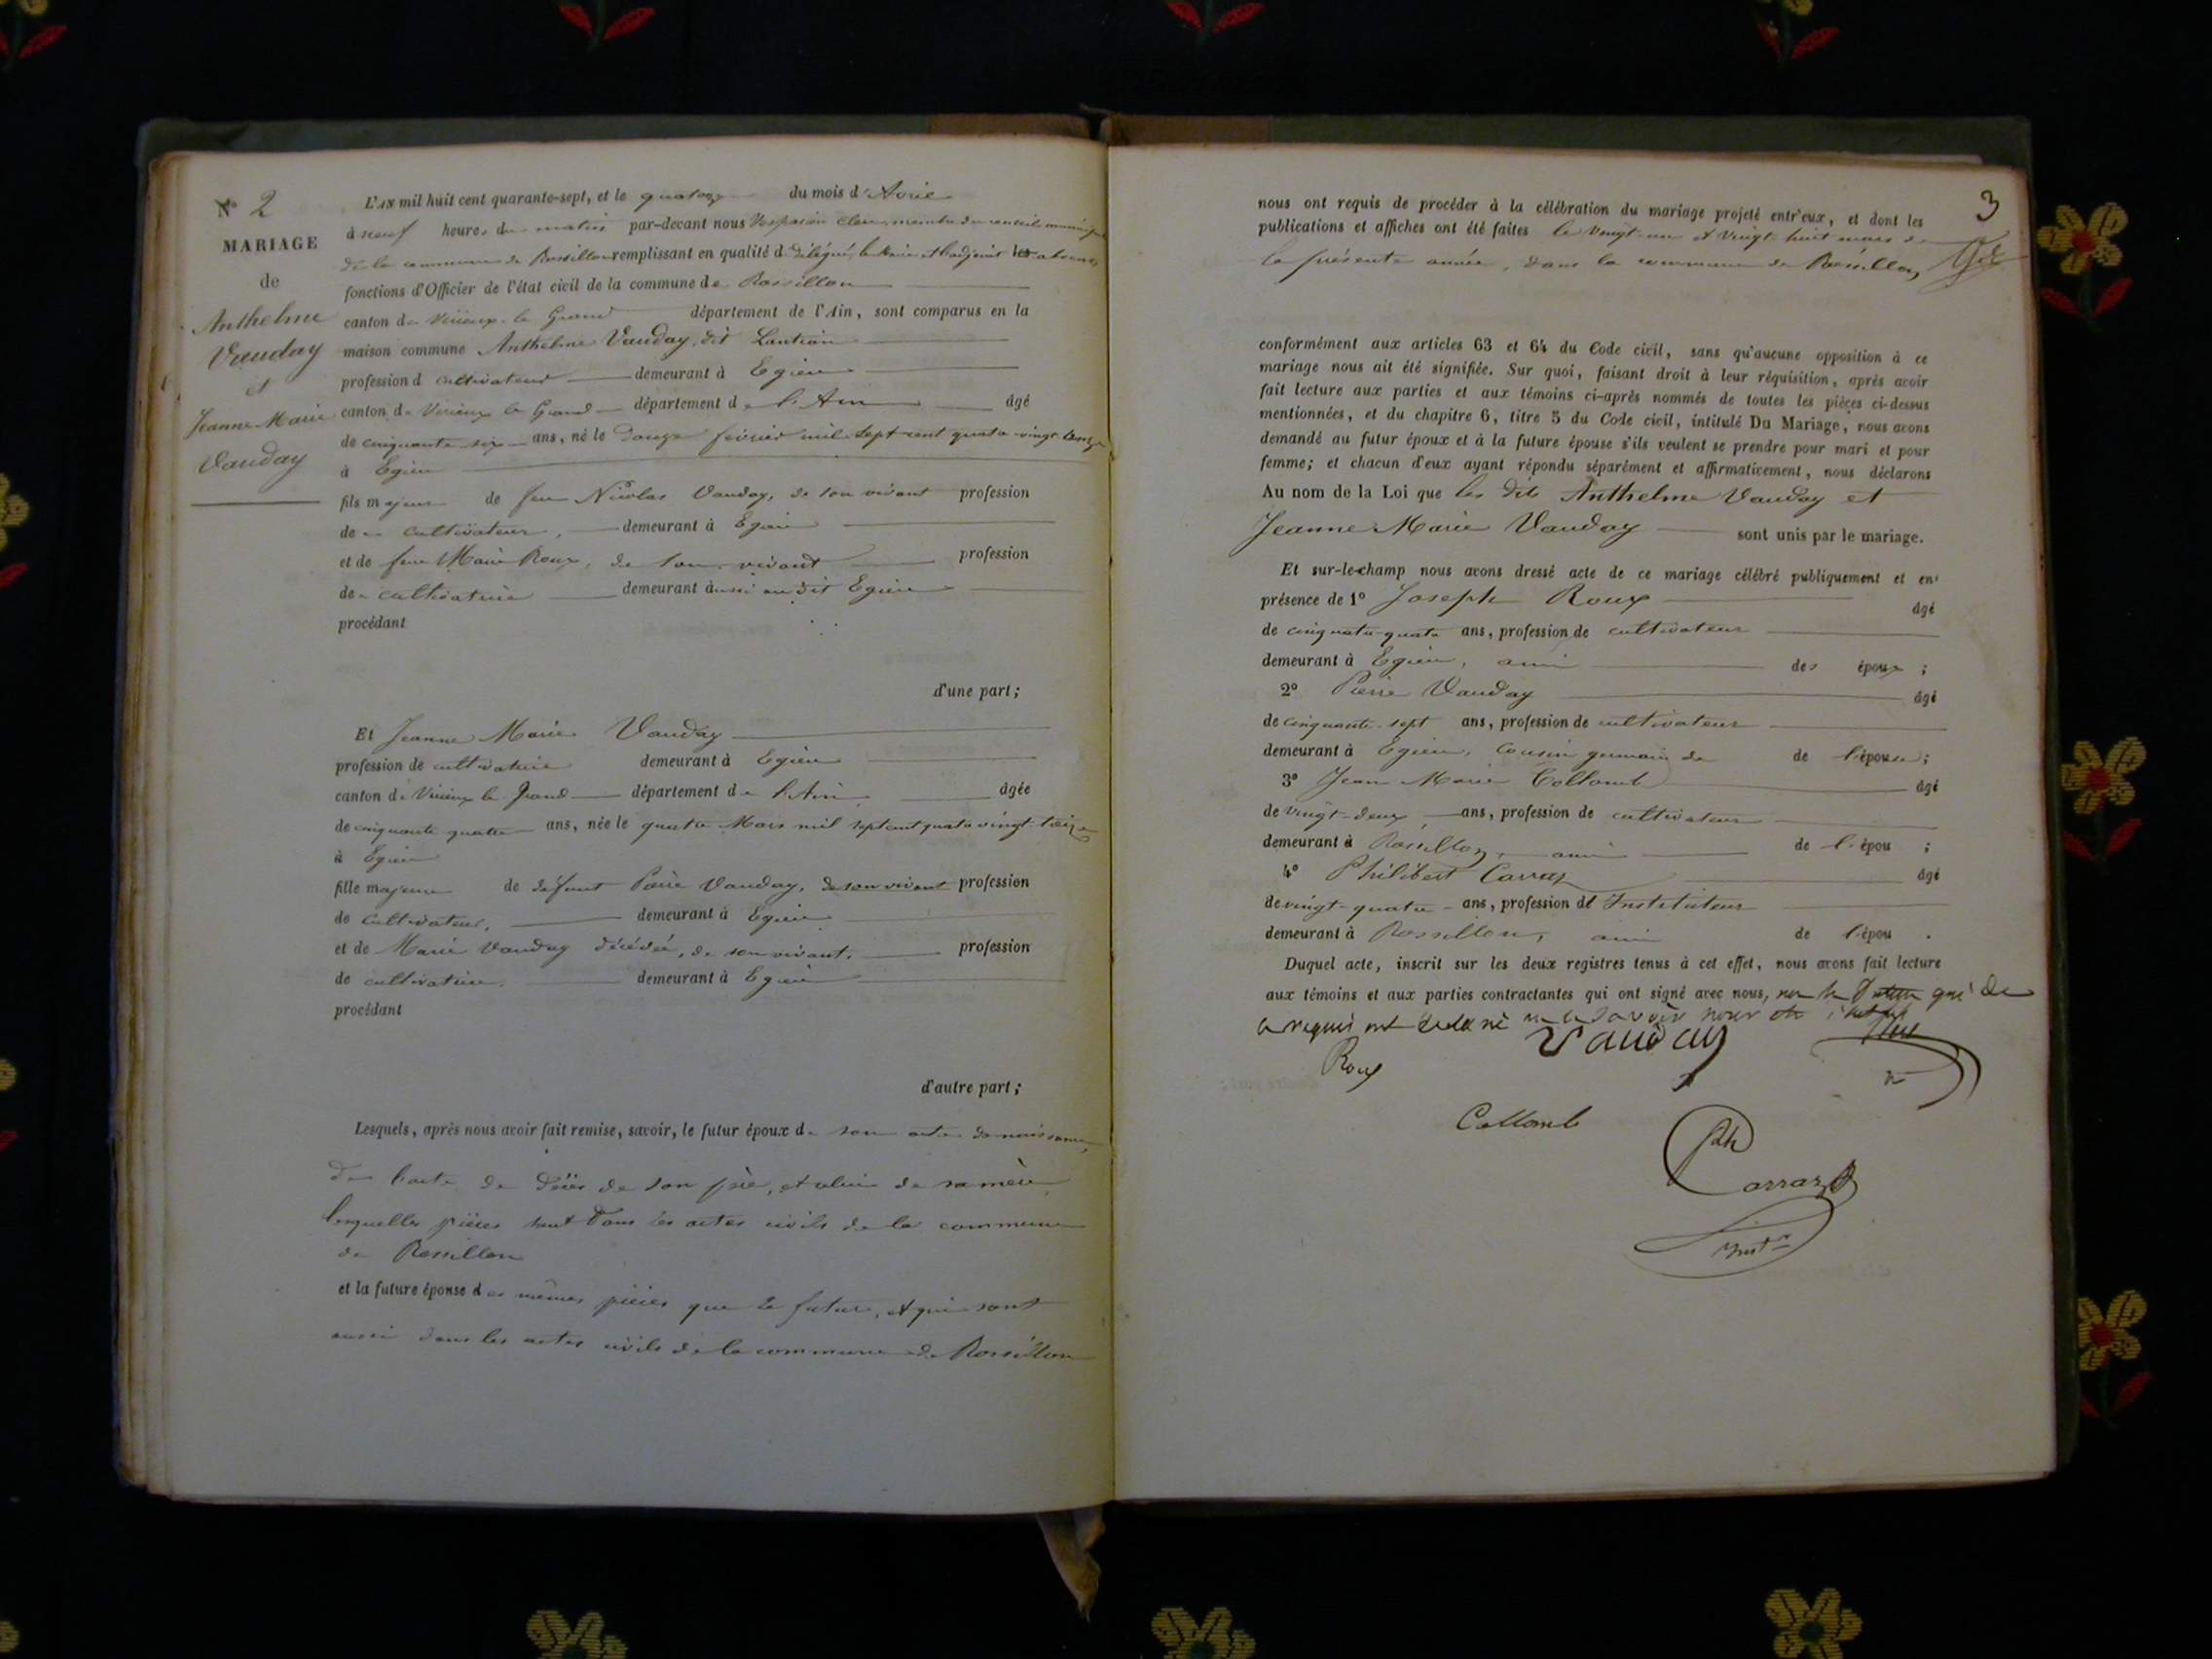 N° 2
MARIAGE
de
Anthelme
Vauday
et
Jeanne Marie
Vauday
L'AN mil huit cent quarante-sept, et le quatorze du mois d'Avril
à neuf heures du matin par-devant nous Vespasien Clerc, membre du conseil municipal
de la commune de Rossillon remplissant en qualité de délégué, le Maire et l'adjoint absents
fonctions d'Officier de l'état civil de la commune de Rossillon
canton de Virieux le Grand département de l'Ain, sont comparus en la
maison commune Anthelme Vauday, dit Lantian
profession d cultivateur demeurant à Egieu
canton de Virieux le Grand département de l'Ain âgé
de cinquante six ans, né le douze février mil sept cent quatre-vingt-onze
à Egieu
fils majeur de feu Nicolas Vauday, de son vivant profession
de cultivateur, demeurant à Egieu
et de feue Marie Roux, de son vivant profession
de cultivatrice demeurant aussi au dit Egieu
procédant
d'une part;
Et Jeanne Marie Vauday
profession de cultivatrice demeurant à Egieu
canton de Virieux le Grand département de l'Ain âgée
de cinquante quatre ans, née le quatre Mars mil sept cent quatre vingt-treize
à Egieu
fille majeure de défunt Pierre Vauday, de son vivant profession
de cultivateur, demeurant à Egieu
et de Marie Vauday décédée, de son vivant, profession
de cultivatrice, demeurant à Egieu
procédant
d'autre part;
Lesquels, après nous avoir fait remise, savoir, le futur époux de son acte de naissance,
de l'acte de décès de son père, et celui de sa mère
lesquelles pièces sont dans les actes civils de la commune
de Rossillon
et la future épouse des mêmes pièces que le futur, et qui sont
aussi dans les actes civils de la commune de Rossillon
3
nous ont requis de procéder à la célébration du mariage projeté entr'eux, et dont les
publications et affiches ont été faites le vingt-un et vingt-huit mars de
la présente année, dans la commune de Rossillon
conformément aux articles 63 et 64 du Code civil, sans qu'aucune opposition à ce
mariage nous ait été signifiée. Sur quoi, faisant droit à leur réquisition, après avoir
fait lecture aux parties et aux témoins ci-après nommés de toutes les pièces ci-dessus
mentionnées, et du chapitre 6, titre 5 du Code civil, intitulé Du Mariage, nous avons
demandé au futur époux et à la future épouse s'ils veulent se prendre pour mari et pour
femme; et chacun d'eux ayant répondu séparément et affirmativement, nous déclarons
Au nom de la Loi que les dits Anthelme Vauday et
Jeanne Marie Vauday sont unis par le mariage.
Et sur-le-champ nous avons dressé acte de ce mariage célébré publiquement et en
présence de 1° Joseph Roux âgé
de cinquante-quatre ans, profession de cultivateur
demeurant à Egieu, ami des époux;
2° Pierre Vauday âgé
de cinquante-sept ans, profession de cultivateur
demeurant à Egieu, cousin germain de de l'épouse;
3° Jean Marie Collomb âgé
de vingt-deux ans, profession de cultivateur
demeurant à Rossillon, ami de l'épou ;
4° Philibert Carraz âgé
de vingt-quatre ans, profession d'Instituteur
demeurant à Rossillon, ami de l'épou .
Duquel acte, inscrit sur les deux registres tenus à cet effet, nous avons fait lecture
aux témoins et aux parties contractantes qui ont signé avec nous, qui de
ce requis ont
Vauday
Roux
Collomb
Ph Carraz
instr